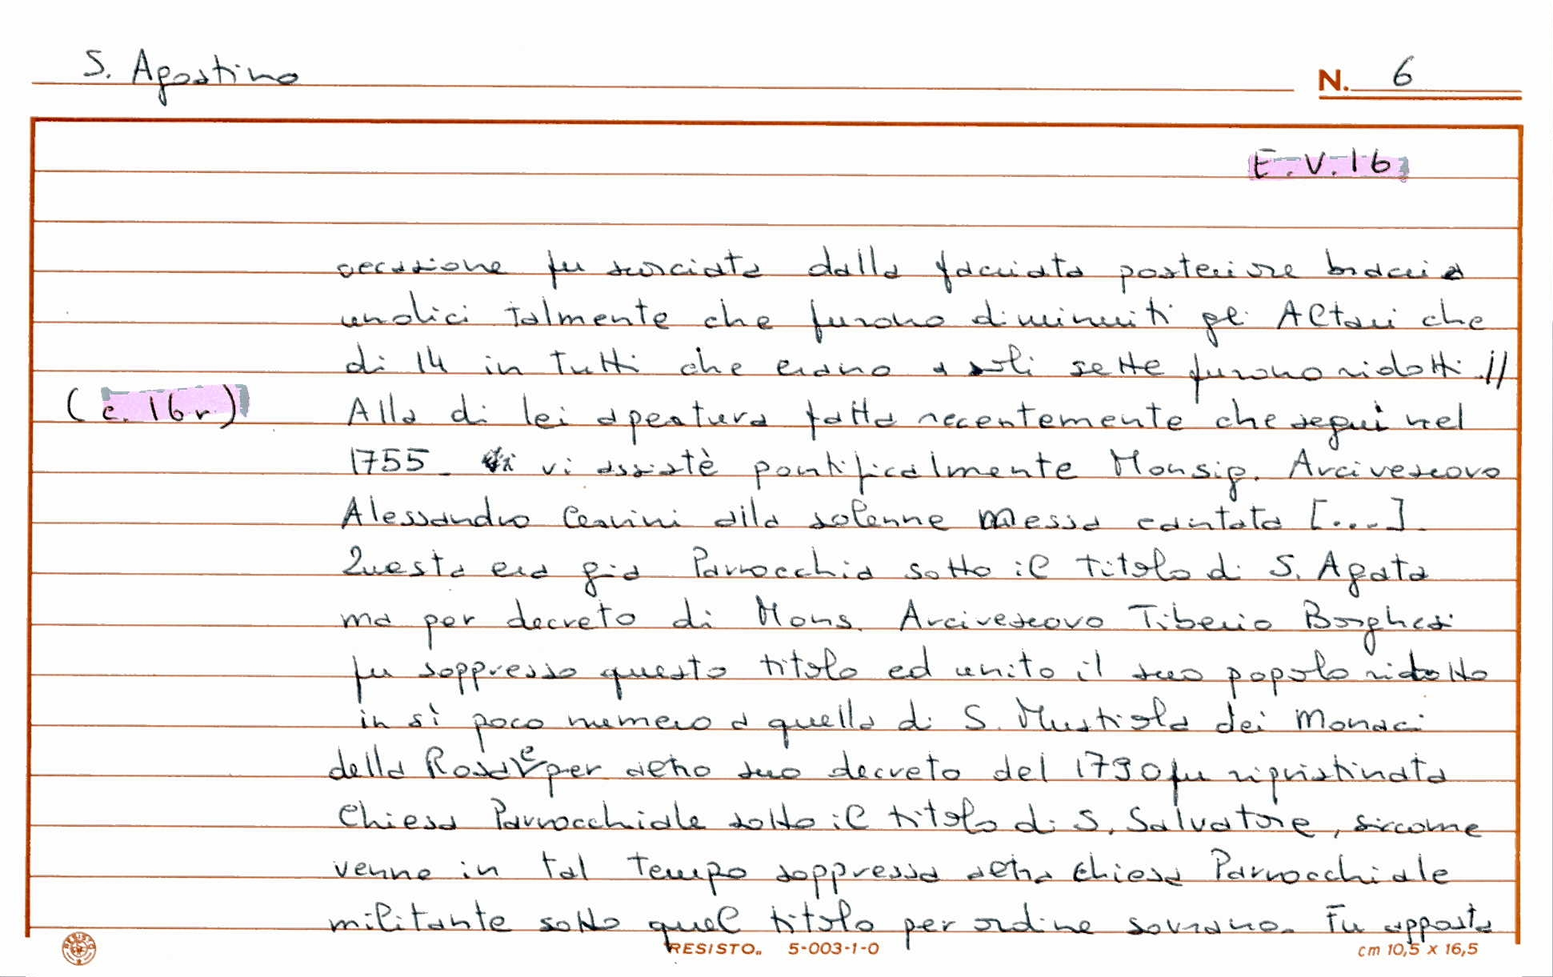 S. Agostino
N. 6
E.V.16
occasione fu scorciata dalla facciata posteriore bracci
undici talmente che furono diminuiti gl'Altari che
di 14 in tutti che erano a soli sette furono ridotti.//
(c. 16r) Alla di lei apertura fatta recentemente che seguì nel
1755 vi assistè pontificalmente Monsig. Arcivescovo
Alessandro Cervini alla solenne Messa cantata [....].
Questa era già Parrocchia sotto il titolo di S. Agata
ma per decreto di Mons. Arcivescovo Tiberio Borghesi
fu soppresso questo titolo ed unito il suo popolo ridotto
in sì poco numero a quella di S. Mustiola dei Monaci
della Rosa e per altro suo decreto del 1790 fu ripristinata
Chiesa Parrocchiale sotto il titolo di S. Salvatore, siccome
venne in tal Tempo soppressa altra Chiesa Parrocchiale
militante sotto quel titolo per ordine sovrano. Fu apposta
RESISTO 5-003-1-0
cm 10,5 x 16,5